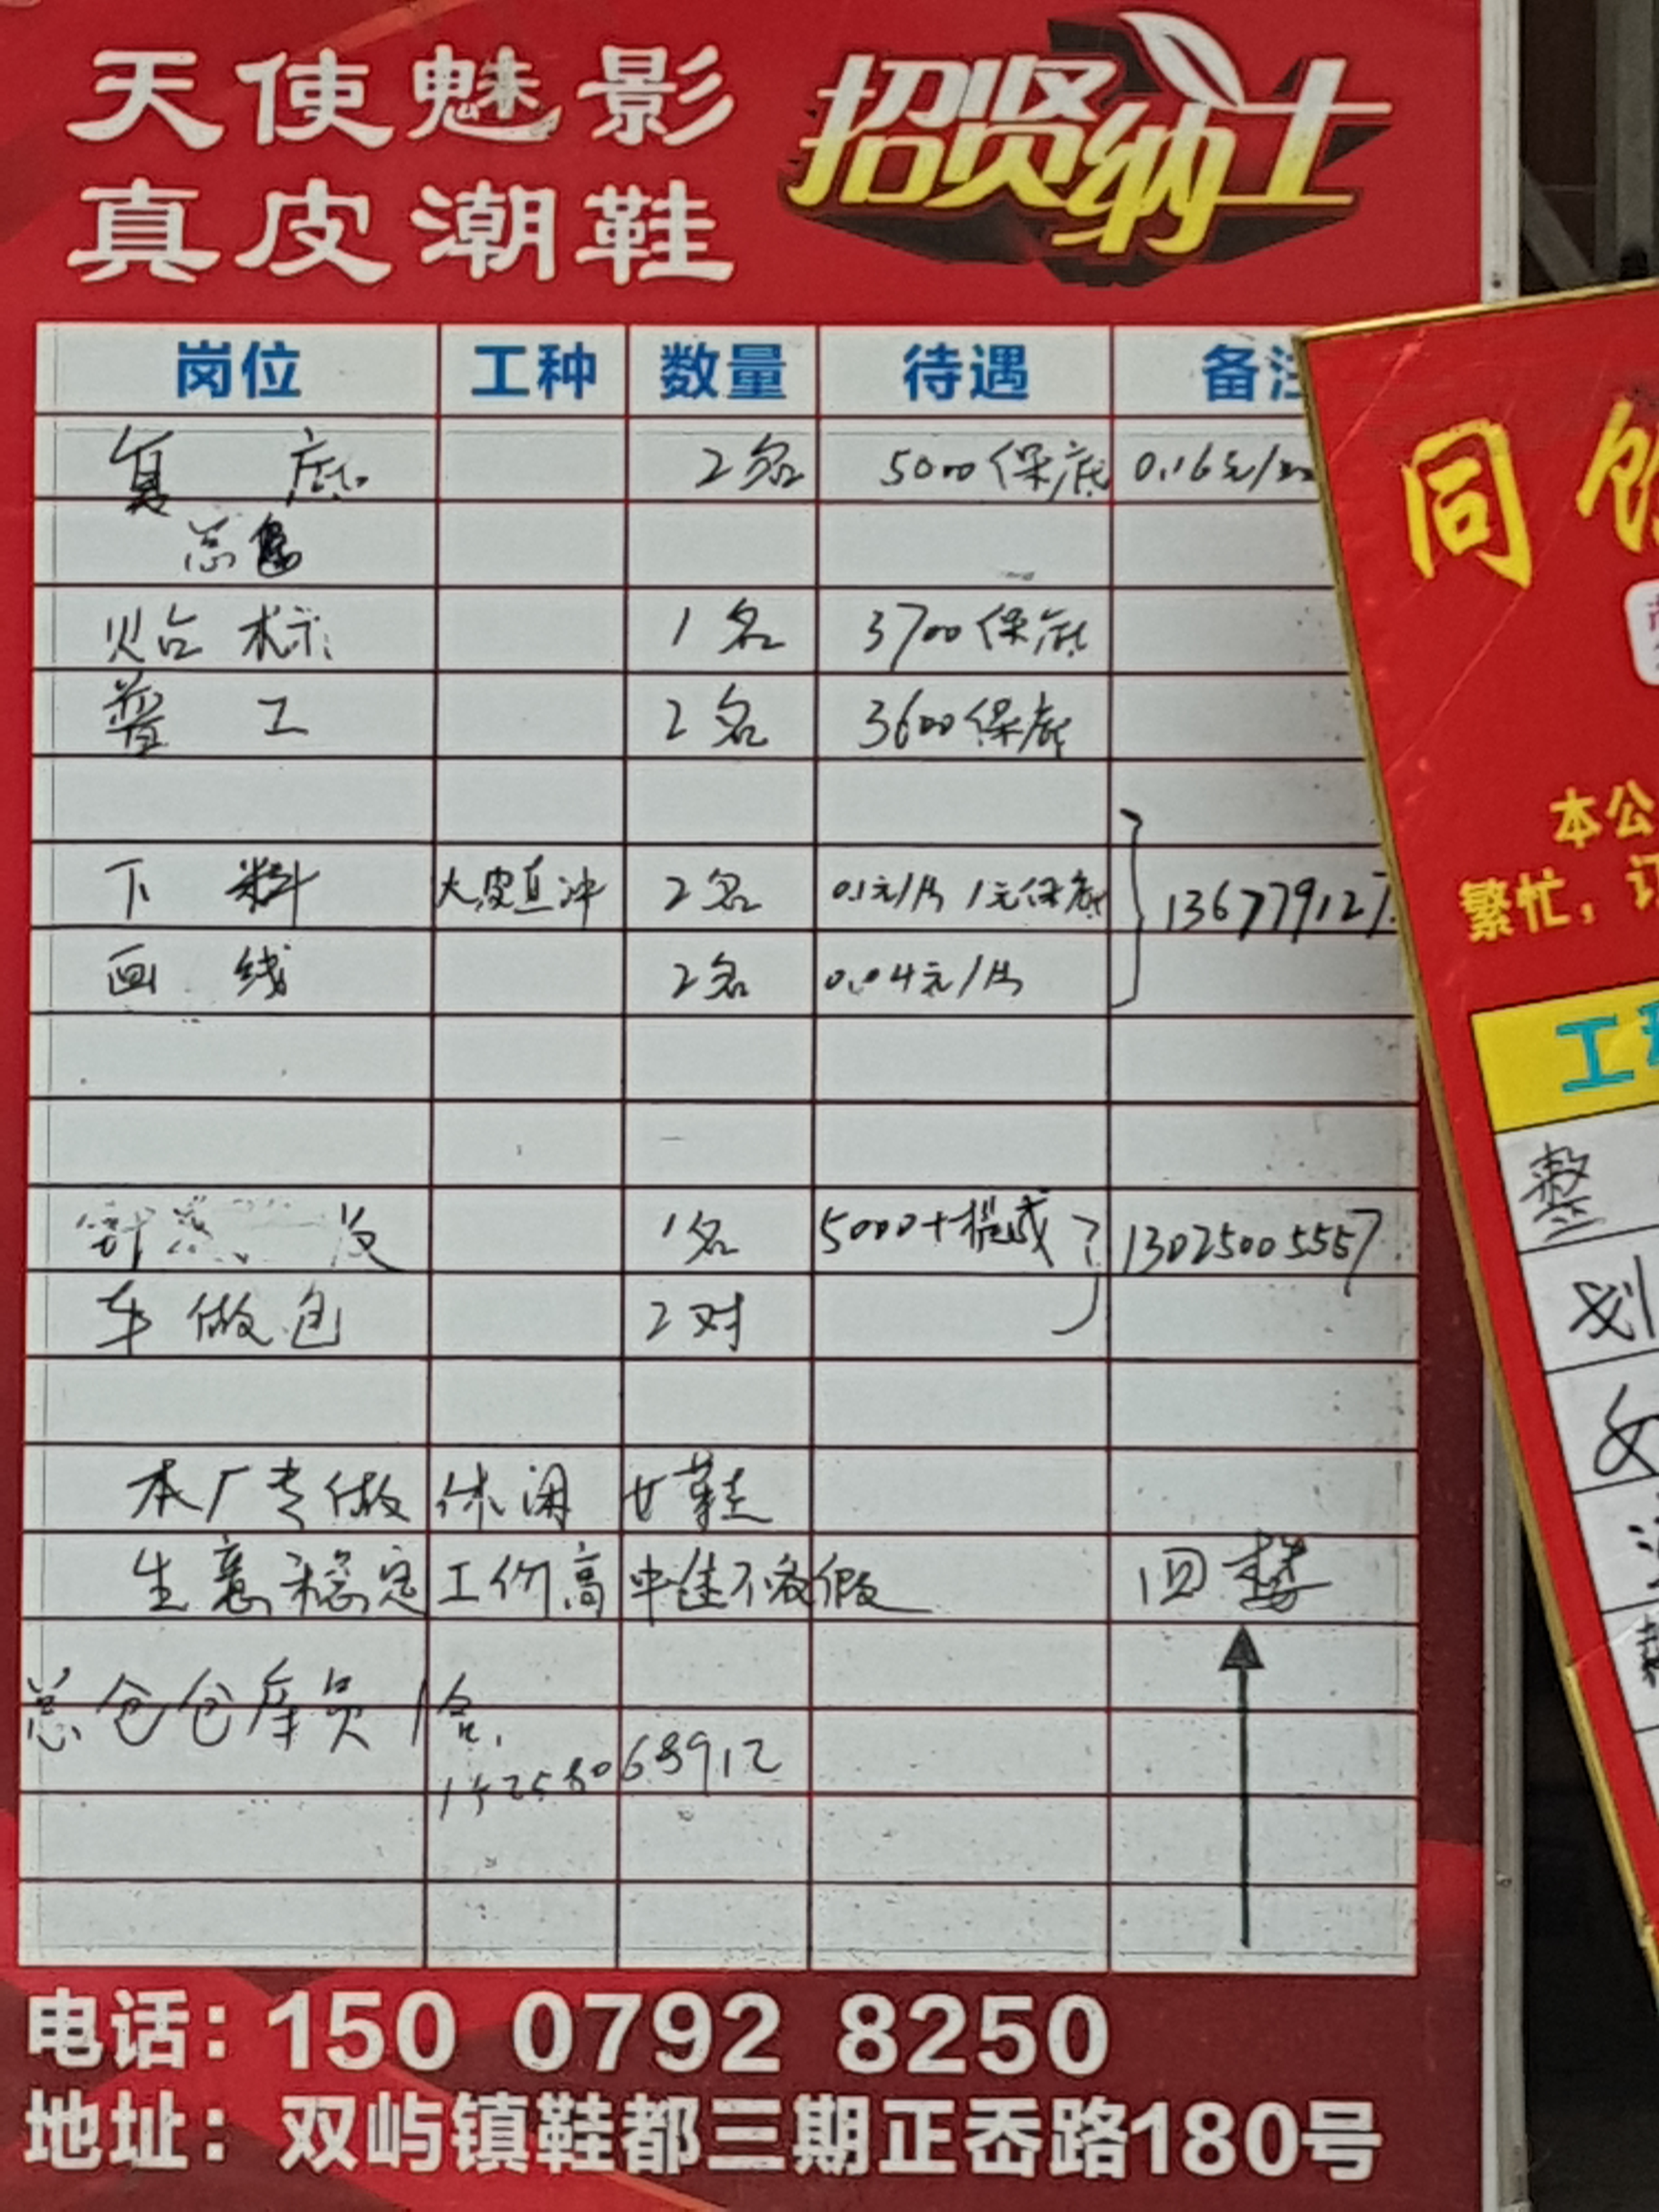 天使魅影
真皮潮鞋
招贤纳士
岗位 工种 数量 待遇 备注
复 底 2名 5000保底 0.16元/双
总包
贴 标 1名 3700保底
普 工 2名 3600保底
下 料 大皮直冲 2名 0.1元/片 1元保底
画 线 2名 0.04元/片
136779127
1名 5000+提成 13025005557
车做包 2对
本厂专做休闲女鞋
生意稳定工价高中途不放假 四楼
总仓仓库员1名.
电话：150 0792 8250
地址：双屿镇鞋都三期正岙路180号
同
本公
繁忙，订
工种
整
划
女